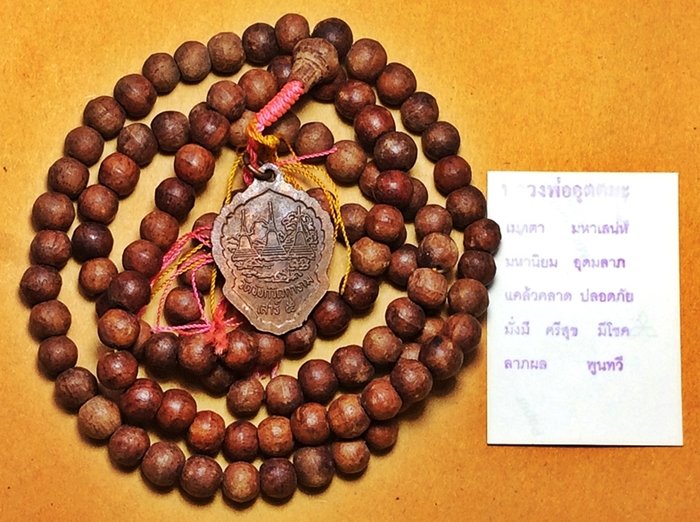 หลวงพ่ออุตตมะ
เมตตา มหาเสน่ห์
มหานิยม อุดมลาภ
แคล้วคลาด ปลอดภัย
มั่งมี ศรีสุข มีโชค
ลาภผล พูนทวี
เสาร์ ๕